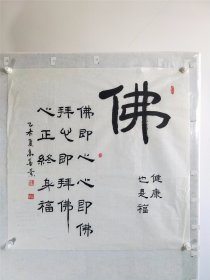 佛
健康
也是福
佛即心心即佛
拜心即拜佛
心正终身福
乙未夏